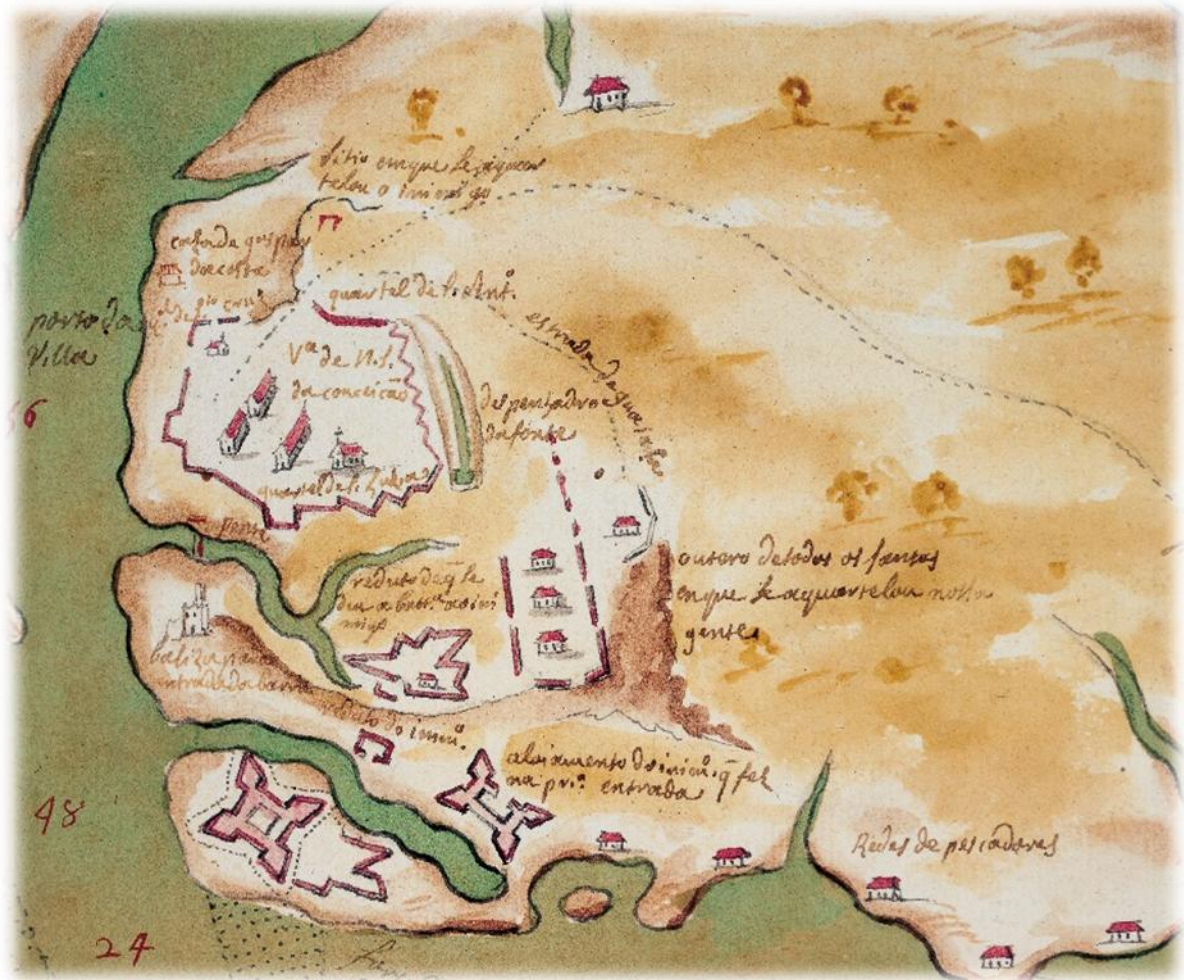 sitio emque se aquar
telou o inimigo
casa de gaspar
da costa
quartel de s. Ant.º
porto da
Villa
Vª de N. S.
da conceição
estrada da
despenhadro
da fonte
quartel de S.
ponte
56
reduto de q̃ se
deu a bat.ª ao ini
migo
outero de todos os santos
enque se aquartelou nossa
gente
baliza para
entrada da barra
reduto do inim.º
alojamento do inim.º q̃ fes
na pr.ª entrada
48
Redes de pescadores
24